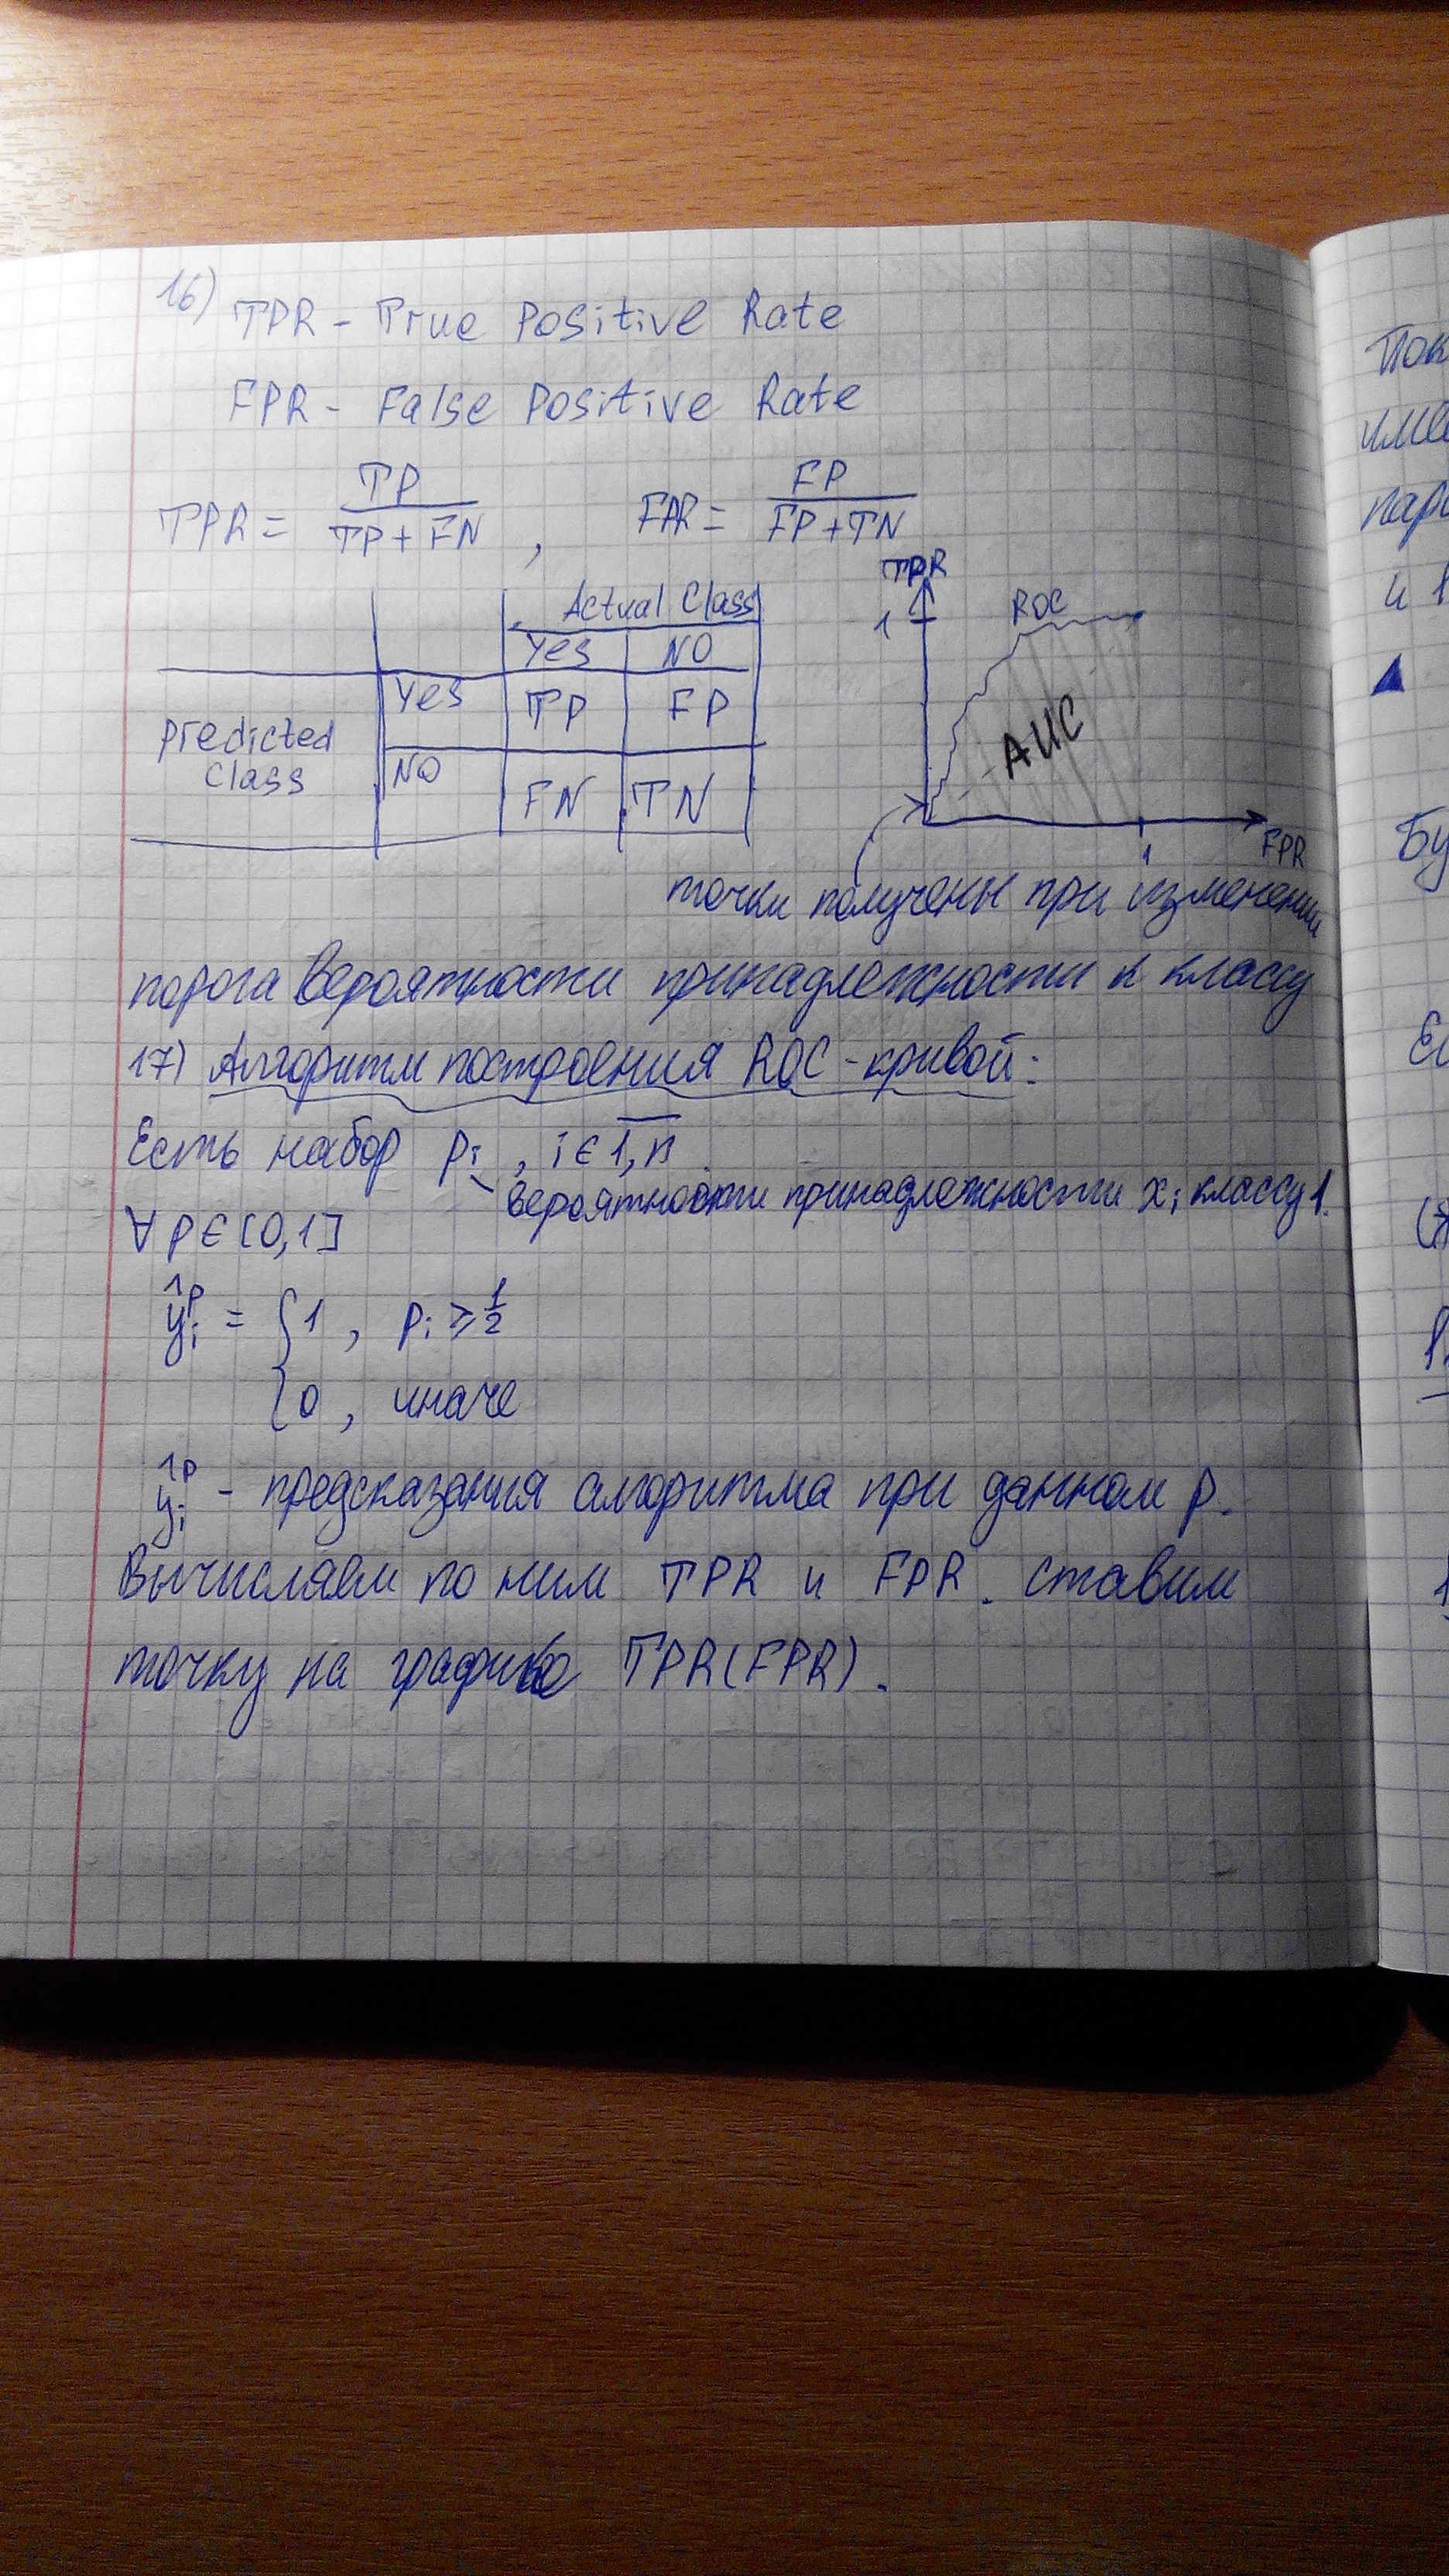 16) TPR - True Positive Rate
FPR - False Positive Rate
TPR = TP / (TP + FN) , FPR = FP / (FP + TN)
Actual Class
Yes NO
Predicted Class
Yes TP FP
NO FN TN
TPR
1
ROC
AUC
1
FPR
точки получены при изменении
порога вероятности принадлежности к классу
17) Алгоритм построения ROC-кривой:
Есть набор pᵢ , i ∈ 1,n
вероятности принадлежности xᵢ классу 1.
∀ p ∈ [0,1]
ŷᵢᵖ = { 1 , pᵢ ≥ 1/2
{ 0 , иначе
ŷᵢᵖ - предсказания алгоритма при данном p.
Вычисляем по ним TPR и FPR. ставим
точку на графике TPR(FPR).
Пок
име
пар
и 1
Бу